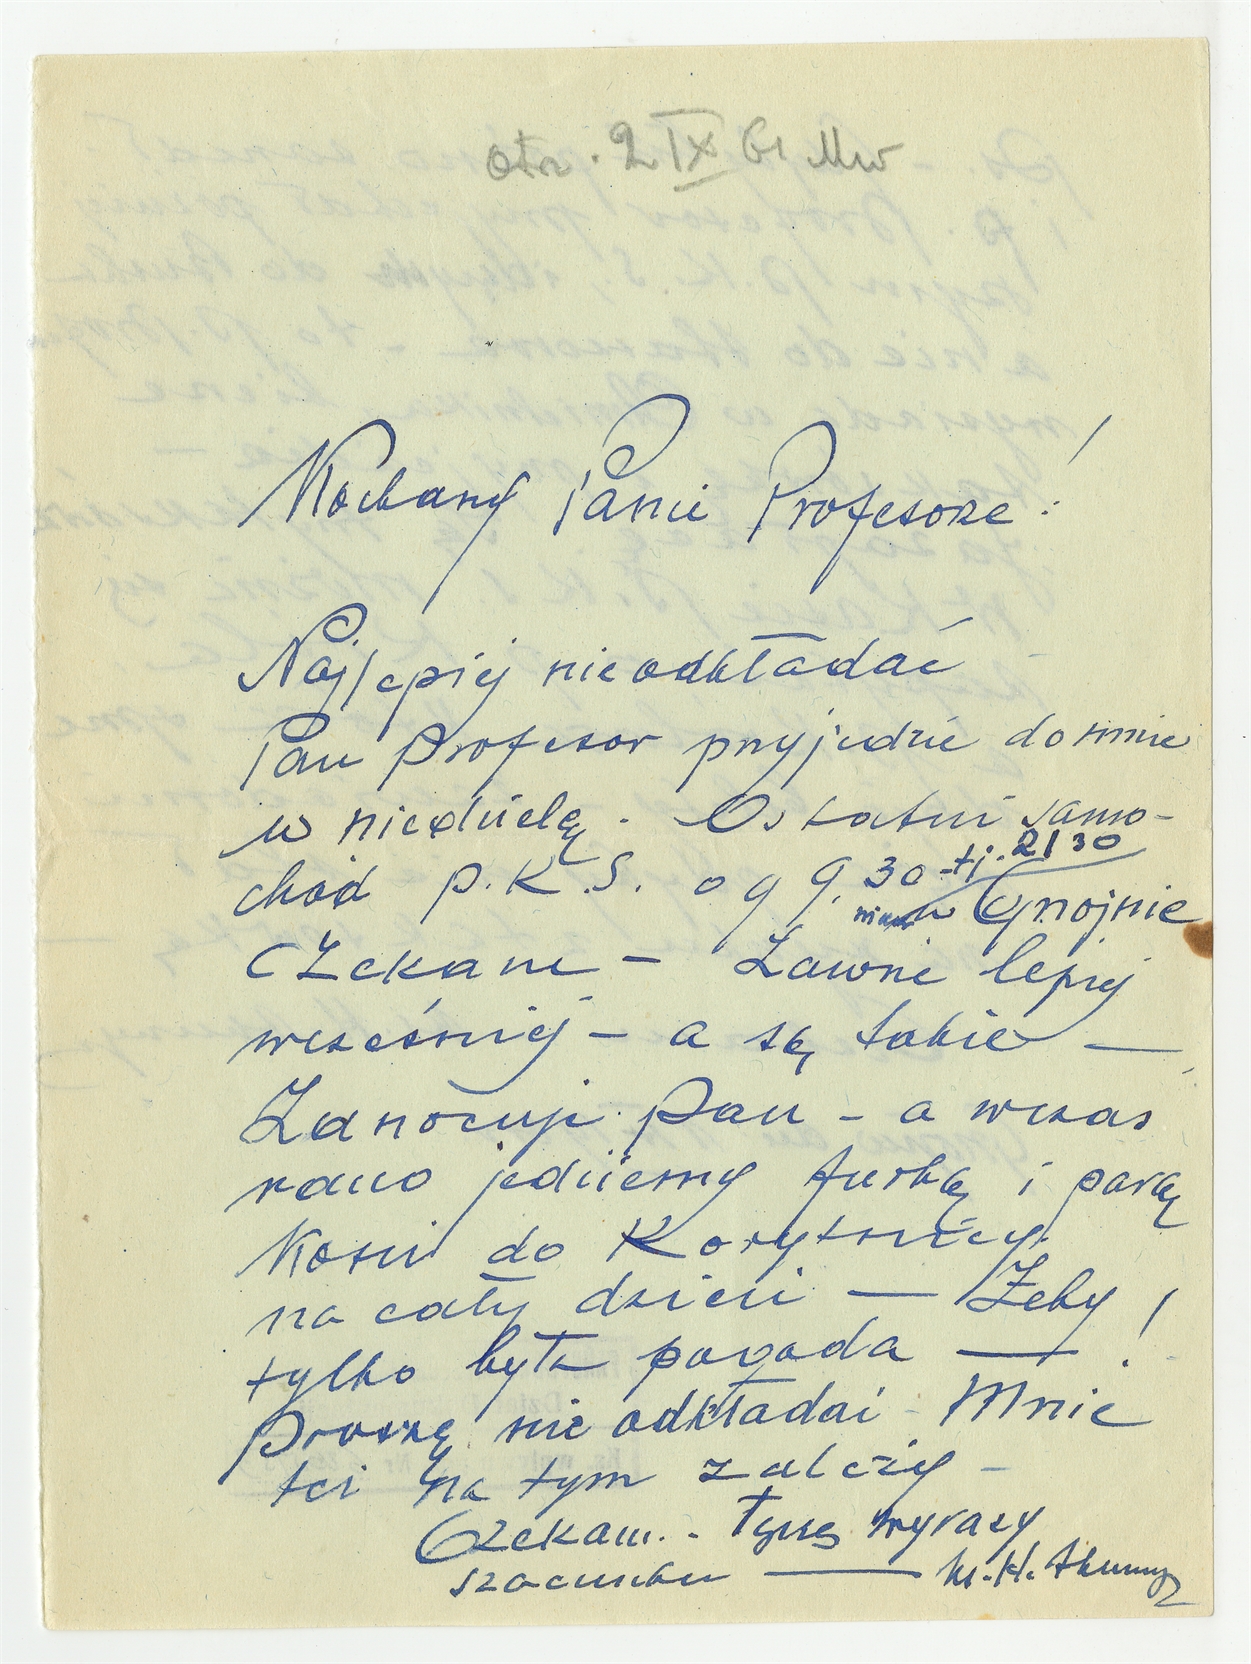 otr. 2 IX 61 Mw
Kochany Panie Profesorze!
Najlepiej nie odkładać
Pan Profesor przyjedzie do mnie
w niedzielę. Ostatni samo-
chód P.K.S. o g 9.30 tj. 21 30
w Gnojnie
Czekam – Zawsze lepiej
wcześniej – a są takie —
Zanocuje Pan – a wczas
rano jedziemy furką i parą
Koni do Korytnicy
na cały dzień — Żeby
tylko była pogoda — !
Proszę nie odkładać – Mnie
też na tym zależy –
Czekam. – Łączę wyrazy
szacunku —